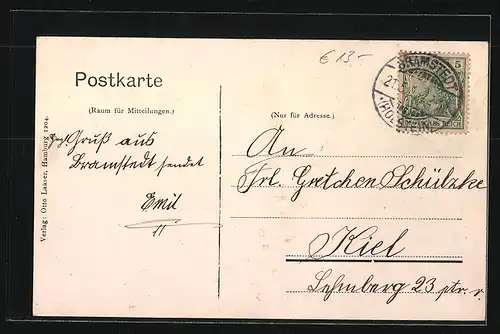 € 13-
BRAMSTEDT
(HOLSTEIN)
5
REICH
Postkarte
(Raum für Mitteilungen.)
(Nur für Adresse.)
Verlag: Otto Laaser, Hamburg 1904.
Gruß aus
Bramstedt sendet
Emil
An
Frl. Gretchen Schülzke
Kiel
Lehmberg 23 ptr. r.